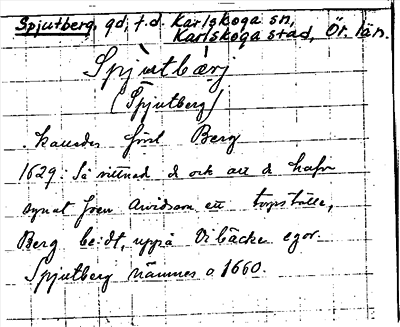 Spjutberg, gd, f.d. Karlskoga sn,
Karlskoga stad, Ör. län.
Spjutbærj
(Spjutberg)
. kallades först Berg
1629: Så vittnad d ock att d hafr
synat fven Arvidson ett torpställe,
Berg be:dt, uppå Vi bäcke egor.
Spjutberg nämnes a 1660.